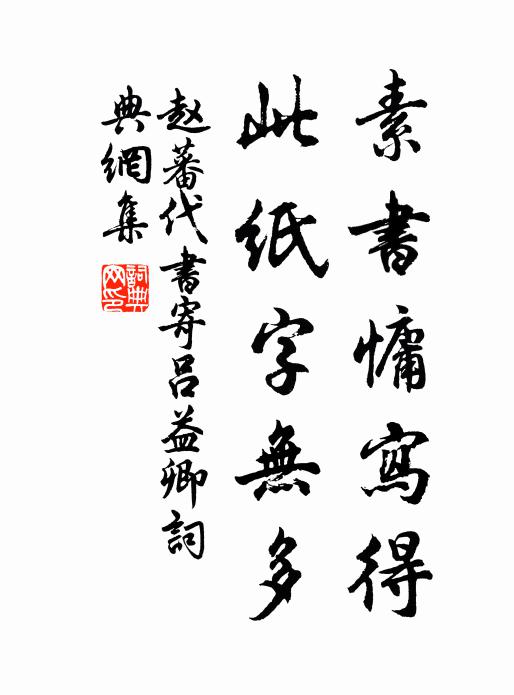 素書慵寫得
此紙字無多
赵蕃代書寄呂益卿詞
典網集
詞典
网印